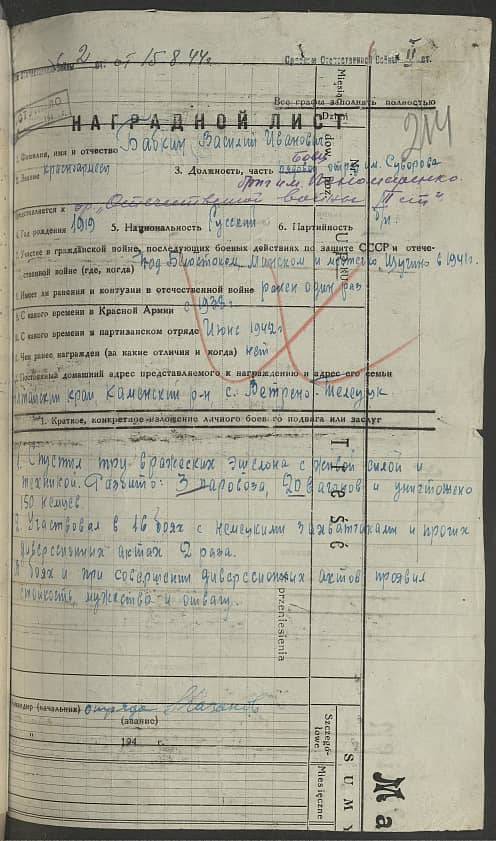 2 от 15.8.44г.
Орденом Отечественной Войны II ст.
Все графы заполнять полностью
НАГРАДНОЙ ЛИСТ
1. Фамилия, имя и отчество Бабкин Василий Иванович
2. Звание красноармеец 3. Должность, часть боец отряд им. Суворова
бриг. им. Пономаренко
Представляется к ор. „Отечественной войны II ст"
4. Год рождения 1919 5. Национальность Русский 6. Партийность б/п.
7. Участие в гражданской войне, последующих боевых действиях по защите СССР и отече-
ственной войне (где, когда) Под Белостоком, Минском и Щучино в 1941г.
8. Имеет ли ранения и контузии в отечественной войне ранен один раз
9. С какого времени в Красной Армии с 1939г.
С какого времени в партизанском отряде Июнь 1942г
Чем ранее награжден (за какие отличия и когда) нет
Постоянный домашний адрес представляемого к награждению и адрес его семьи
Алтайский край Каменский р-н с. Ветрено-Телеуцк
1. Краткое, конкретное изложение личного боевого подвига или заслуг
1. Спустил три вражеских эшелона с живой силой и
техникой. Разбито: 3 паровоза, 20 вагонов и уничтожено
150 немцев.
2. Участвовал в 16 боях с немецкими захватчиками и прочих
диверсионных актах 2 раза.
В боях и при совершении диверсионных актов проявил
стойкость, мужество и отвагу.
Командир (начальник) отряда Мазанов
(звание)
" 194 г.
214
Miesiąc
Dzień
Treść
przeniesienia
Szczegó-
łowe
Miesięczne
SUMY
Ma